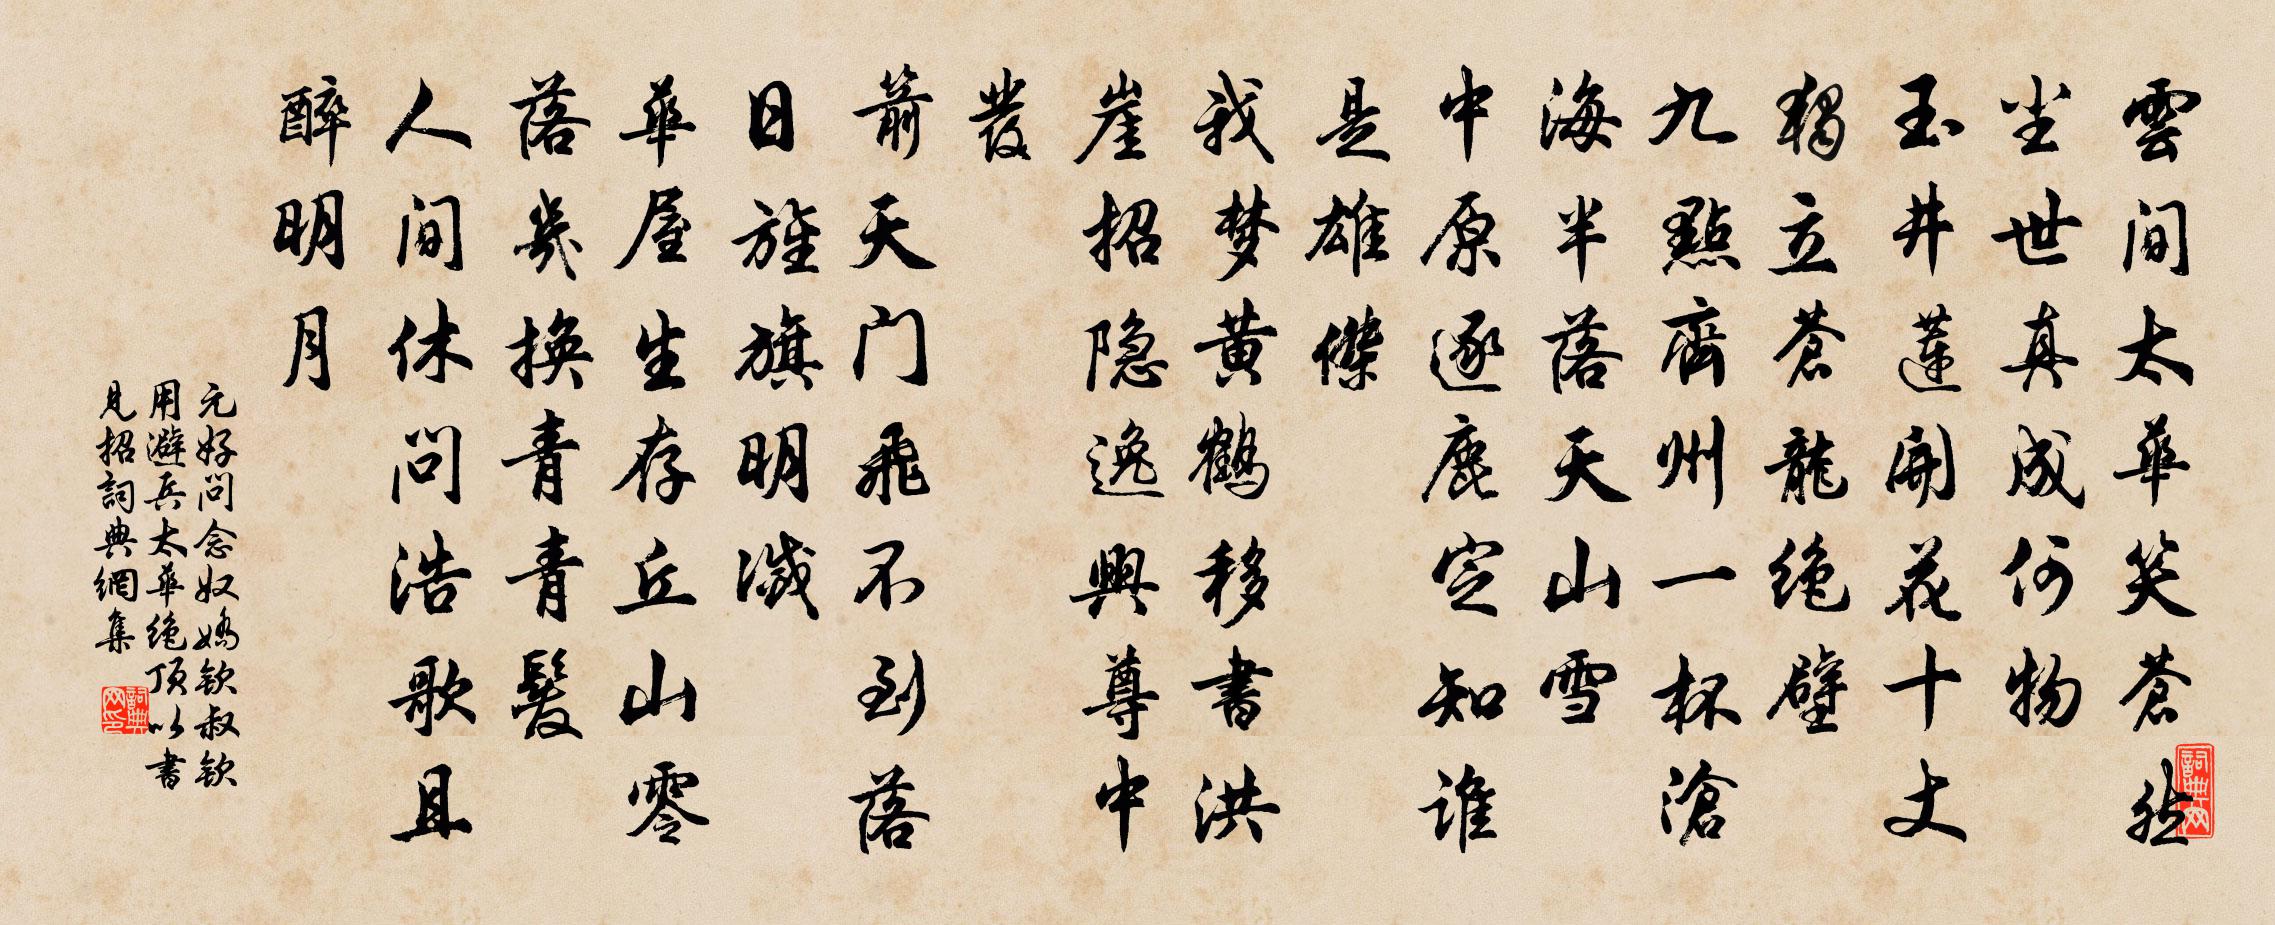 雲间太華笑蒼然
尘世真成何物
玉井莲開花十丈
獨立蒼龍绝壁
九點齊州一杯滄
海半落天山雪
中原逐鹿定知谁
是雄傑
我梦黄鹤移書洪
崖招隐逸興尊中
發
箭天门飛不到落
日旌旗明滅
華屋生存丘山零
落幾换青青髪
人间休问浩歌且
醉明月
元好问念奴嬌钦叔钦
用避兵太華绝顶以書
見招詞典網集
詞典网
詞典网印